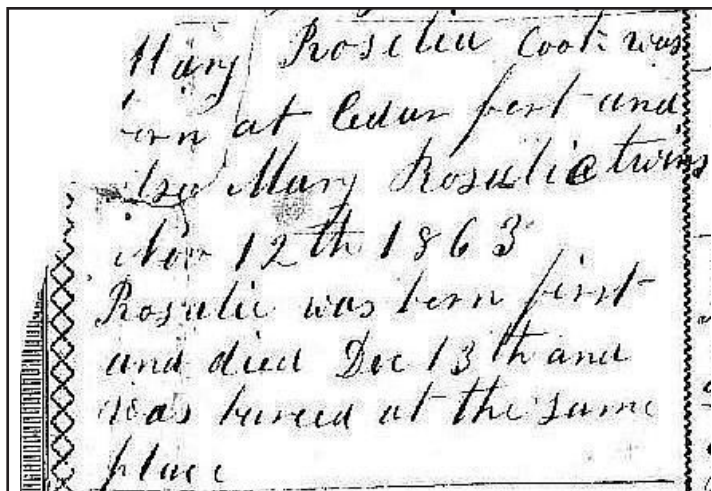 Mary Roselia Cook was
born at Cedar fort and
also Mary Rosalie twins
Nov 12th 1863
Rosalie was born first
and died Dec 13th and
was bureed at the same
place